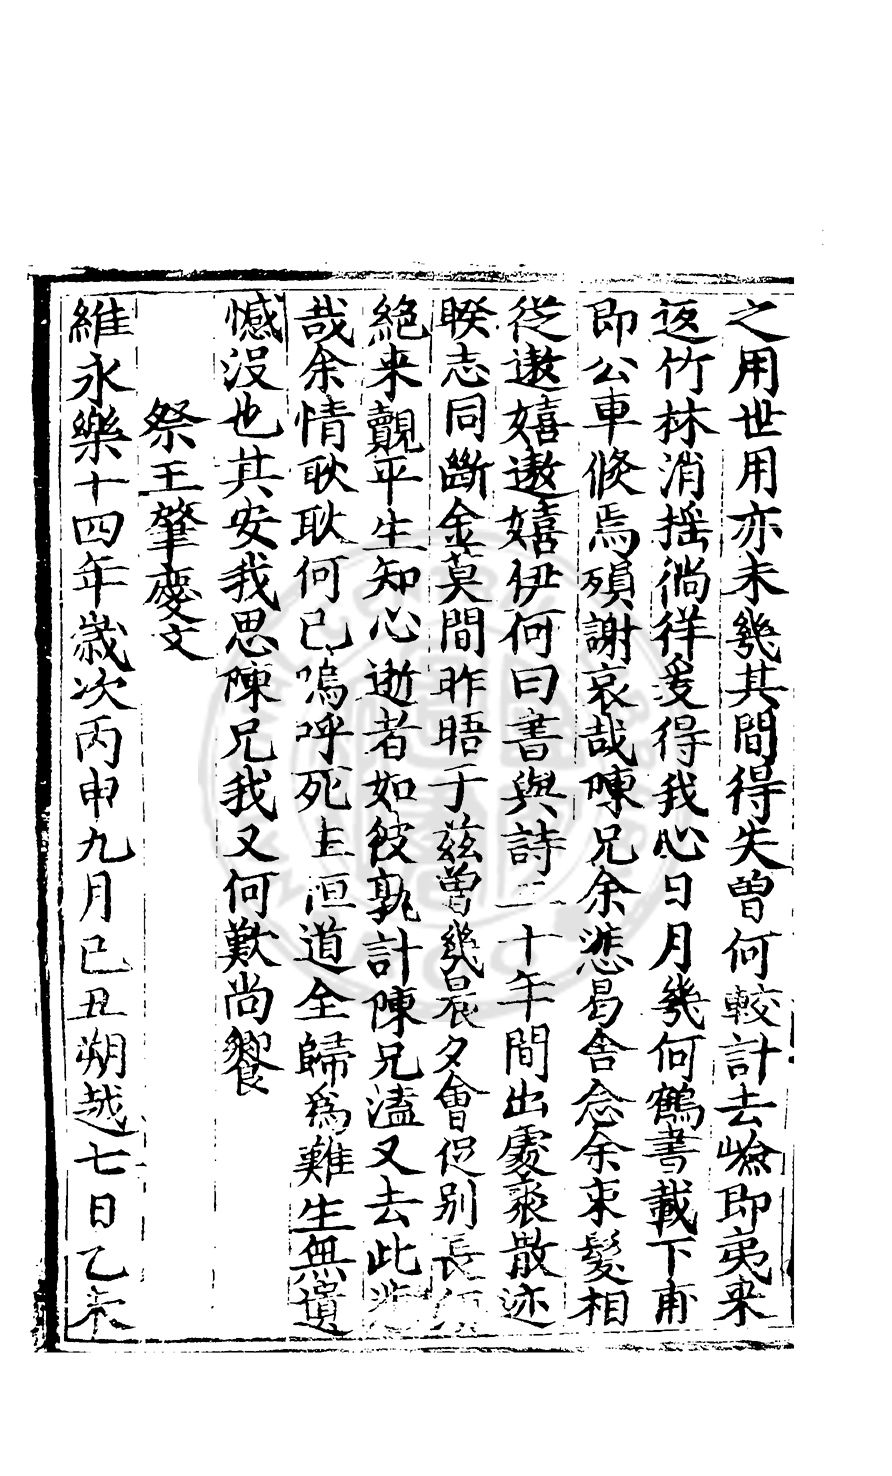 之用世用亦未幾其間得失曾何較計去險即夷来
返竹林消揺徜徉爰得我心日月幾何鶴書載下甫
即公車倏焉殞謝哀哉陳兄余悲曷舍念余束髮相
從遨嬉遨嬉伊何曰書與詩二十年間出處聚散迹
暌志同斷金莫間昨晤于兹曽幾晨夕會促别長
絶来觀平生知心逝者如彼孰計陳兄溘又去此
哉余情耿耿何已嗚呼死生恒道全歸為難生無遺
憾没也其安我思陳兄我又何歎尚饗
祭王肇慶文
維永樂十四年歳次丙申九月已丑朔越七日乙未